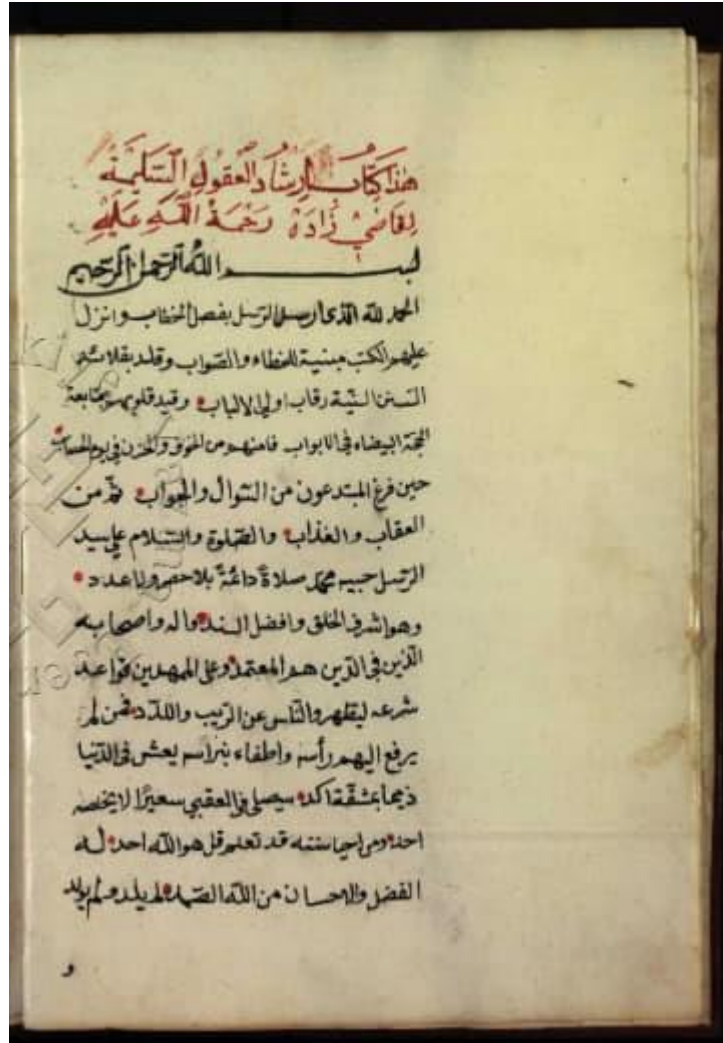 هذا كتاب ارشاد العقول السليمة
لقاضي زاده رحمة الله عليه
بسم الله الرحمن الرحيم
الحمد لله الذي ارسل الرسل بفصل الخطاب وانزل
عليهم الكتب مبنية للخطاء والصواب وقلد بقلائد
السنن السنية رقاب اولي الالباب وقيد قلوبهم بمتابعة
المحجة البيضاء في الابواب فامنهم من الخوف والحزن في يوم الحساب
حين فرغ المبتدعون من السؤال والجواب ثم من
العقاب والعذاب والصلوة والسلام على سيد
الرسل حبيبه محمد صلاة دائمة بلا حصر ولا عدد
وهو اشرف الخلق وافضل السند واله واصحابه
الذين في الدين هم المعتمد وعلى الممهدين قواعد
شرعه ليقلهر والناس عن الريب واللدد فمن لم
يرفع اليهم رأسه واطفاء نبراسه يعش في الدنيا
ذيحا بمشقة اكد سيصلى في العقبي سعيرا لا يخصه
احد ومن احيا سنته قد تعلم قل هو الله احد له
الفضل والاحسان من الله الصمد لم يلد ولم يولد
و